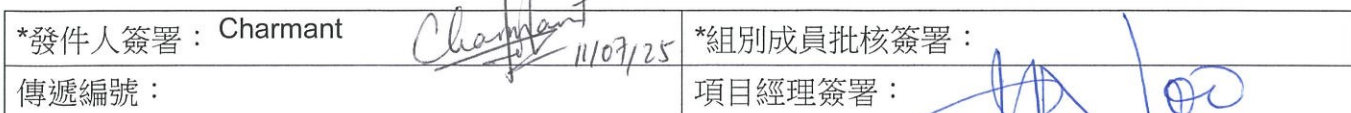 *發件人簽署： Charmant Charmant 11/07/25
*組別成員批核簽署：
傳遞編號：
項目經理簽署：